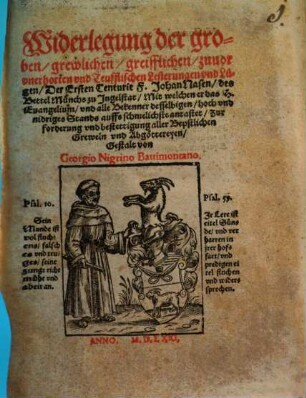 Widerlegung der gro-
ben / grewlichen / greifflichen / zuuor
vnerhorten vnd Teufflischen Lesterungen vnd Lü-
gen / Der Ersten Centurie F. Johan Nasen / des
Bettel Münchs zu Ingelstat / Mit welchen er das H.
Euangelium / vnd alle Bekenner desselbigen / hoch vnd
nidriges Stands auffs schmelichst antastet / Zur
forderung vnd bestettigung aller Bepstlichen
Greweln vnd Abgöttereyen /
Gestelt von
Georgio Nigrino Battimontano.
Psal. 10.
Sein
Munde ist
vol fluch
ens / falsch
es vnd tru
ges / seine
zunge richt
mühe vnd
arbeit an.
Psal. 59.
Ir Lere ist
eitel Sün
de / vnd ver
harren in
irer hof
fart / vnd
predigen ei
tel fluchen
vnd widers
sprechen.
ANNO. M. D. LXXI.